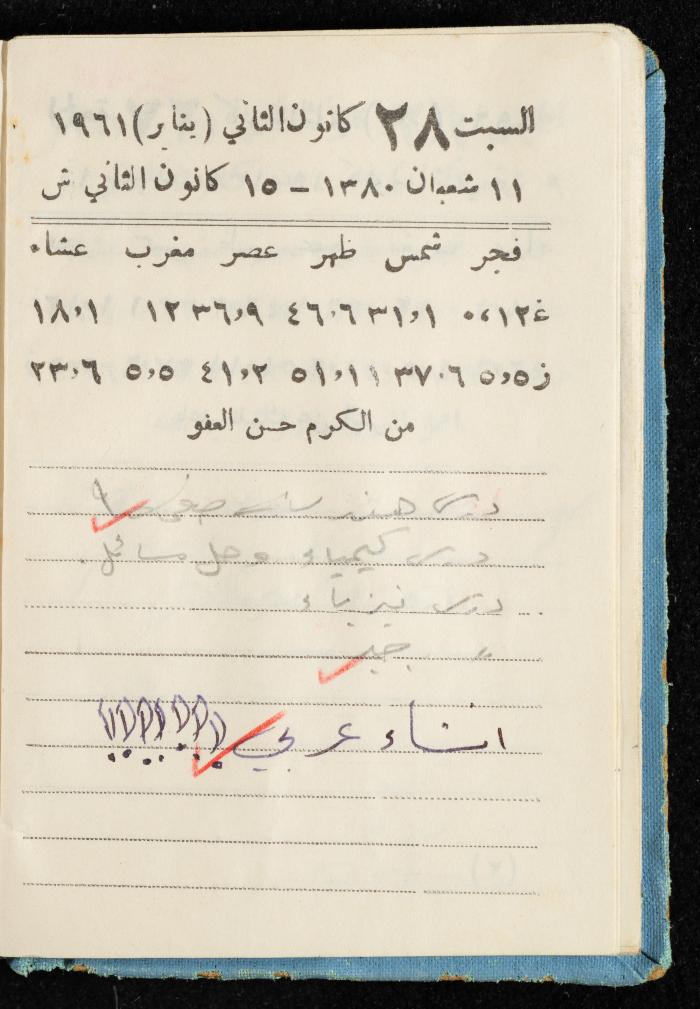 السبت ٢٨ كانون الثاني (يناير) ١٩٦١
١١ شعبان ١٣٨٠ – ١٥ كانون الثاني ش
فجر شمس ظهر عصر مغرب عشاء
غ ١٢،٠٥ ١،٣١ ٦،٤٦ ٩،٣٦ ١٢ ١،١٨
ز ٥،٠٥ ٦،٣٧ ١١،٥١ ٢،٤١ ٥،٠٥ ٦،٢٣
من الكرم حسن العفو
درس هندسة
درس كيمياء وحل مسائل.
درس فيزياء
〃 جبر
انشاء عربي !!!!!!!